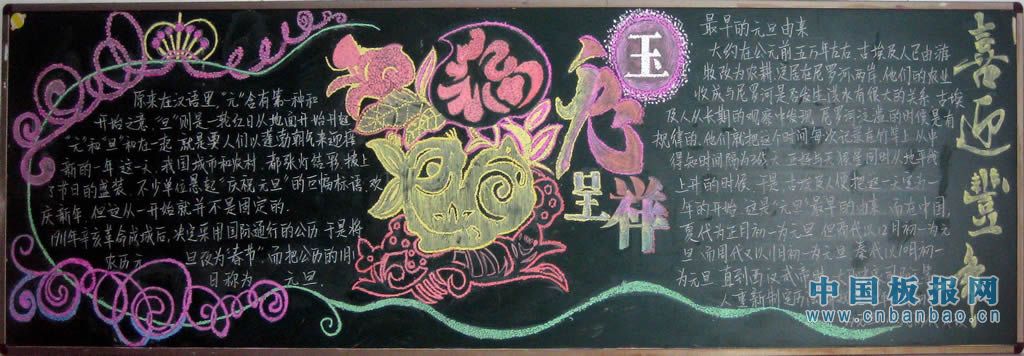 原来在汉语里,"元"含有第一种和
开始之意,"旦"则是一轮红日从地面开始升起
"元"和"旦"和在一起,就是要人们以蓬勃朝气来迎接
新的一年.这一天,我国城市和农村,都张灯结彩,披上
了节日的盛装,不少单位悬起"庆祝元旦"的巨幅标语,欢
庆新年.但这从一开始就并不是固定的.
1911年辛亥革命成成后,决定采用国际通行的公历,于是将
农历元旦改为"春节",而把公历的1月1
日称为元旦.
祝
玉
兔
呈
祥
最早的元旦由来
大约在公元前五万年左右,古埃及人已由游
牧改为农耕,定居在尼罗河两岸,他们的农业
收成与尼罗河是否发生洪水有很大的关系.古埃
及人从长期的观察中发现,尼罗河泛滥的时候是有
规律的,他们就把这个时间每次记录在竹竿上,从中
得知时间
上升的时候.于是,古埃及人便把这一天定为一
年的开始.这是"元旦"最早的由来.而在中国
夏代为正月初一为元旦,但商代以12月初一为元
旦,而周代又以11月初一为元旦.秦代以10月初一
为元旦,直到西汉武帝
人重新制定历
喜迎豐年
中国板报网
www.cnbanbao.cn